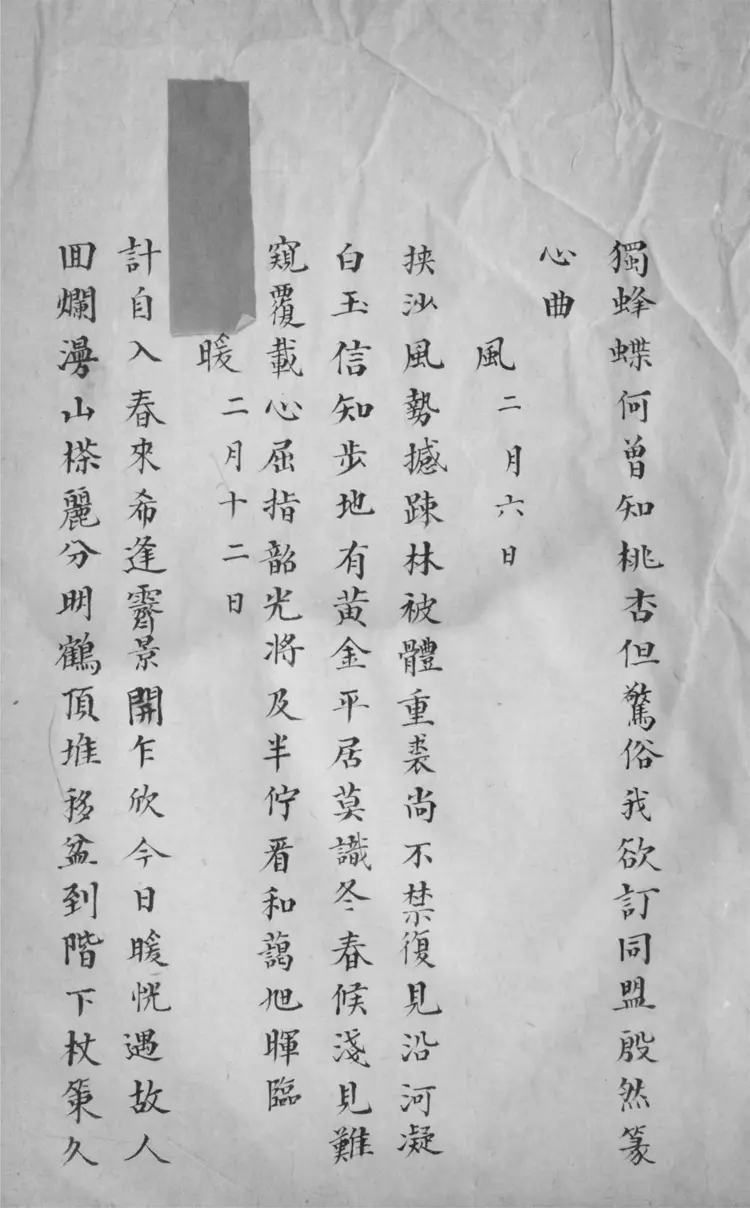 獨蜂蝶何曾知桃杏但驚俗我欲訂同盟殷然篆
心曲
風二月六日
挾沙風勢撼踈林被體重裘尚不禁復見沿河凝
白玉信知步地有黃金平居莫識冬春候淺見難
窺覆載心屈指韶光將及半佇看和藹旭暉臨
暖二月十二日
計自入春來希逢霽景開乍欣今日暖恍遇故人
回爛漫山櫒麗分明鶴頂堆移盆到階下杖策久